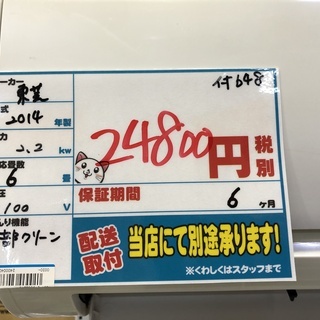 ーカー 東芝
式 2014 年製
力 2.2 kw
応畳数 6 畳
圧 100 V
んり機能
クリーン
付648
24800円 税別
保証期間 6ヶ月
配送取付 当店にて別途承ります!
※くわしくはスタッフまで